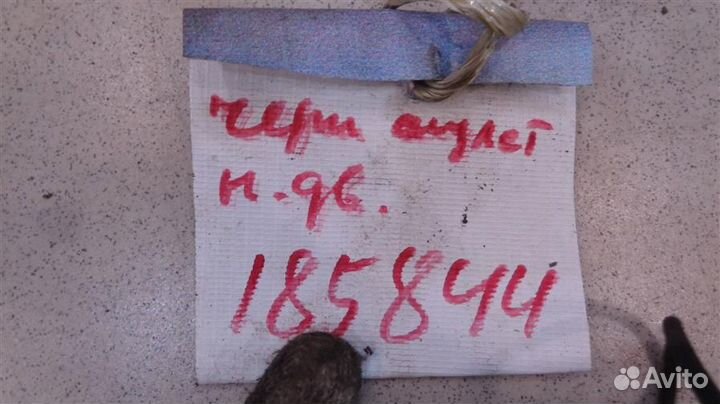 чери амулет
н.дв.
185844
Avito